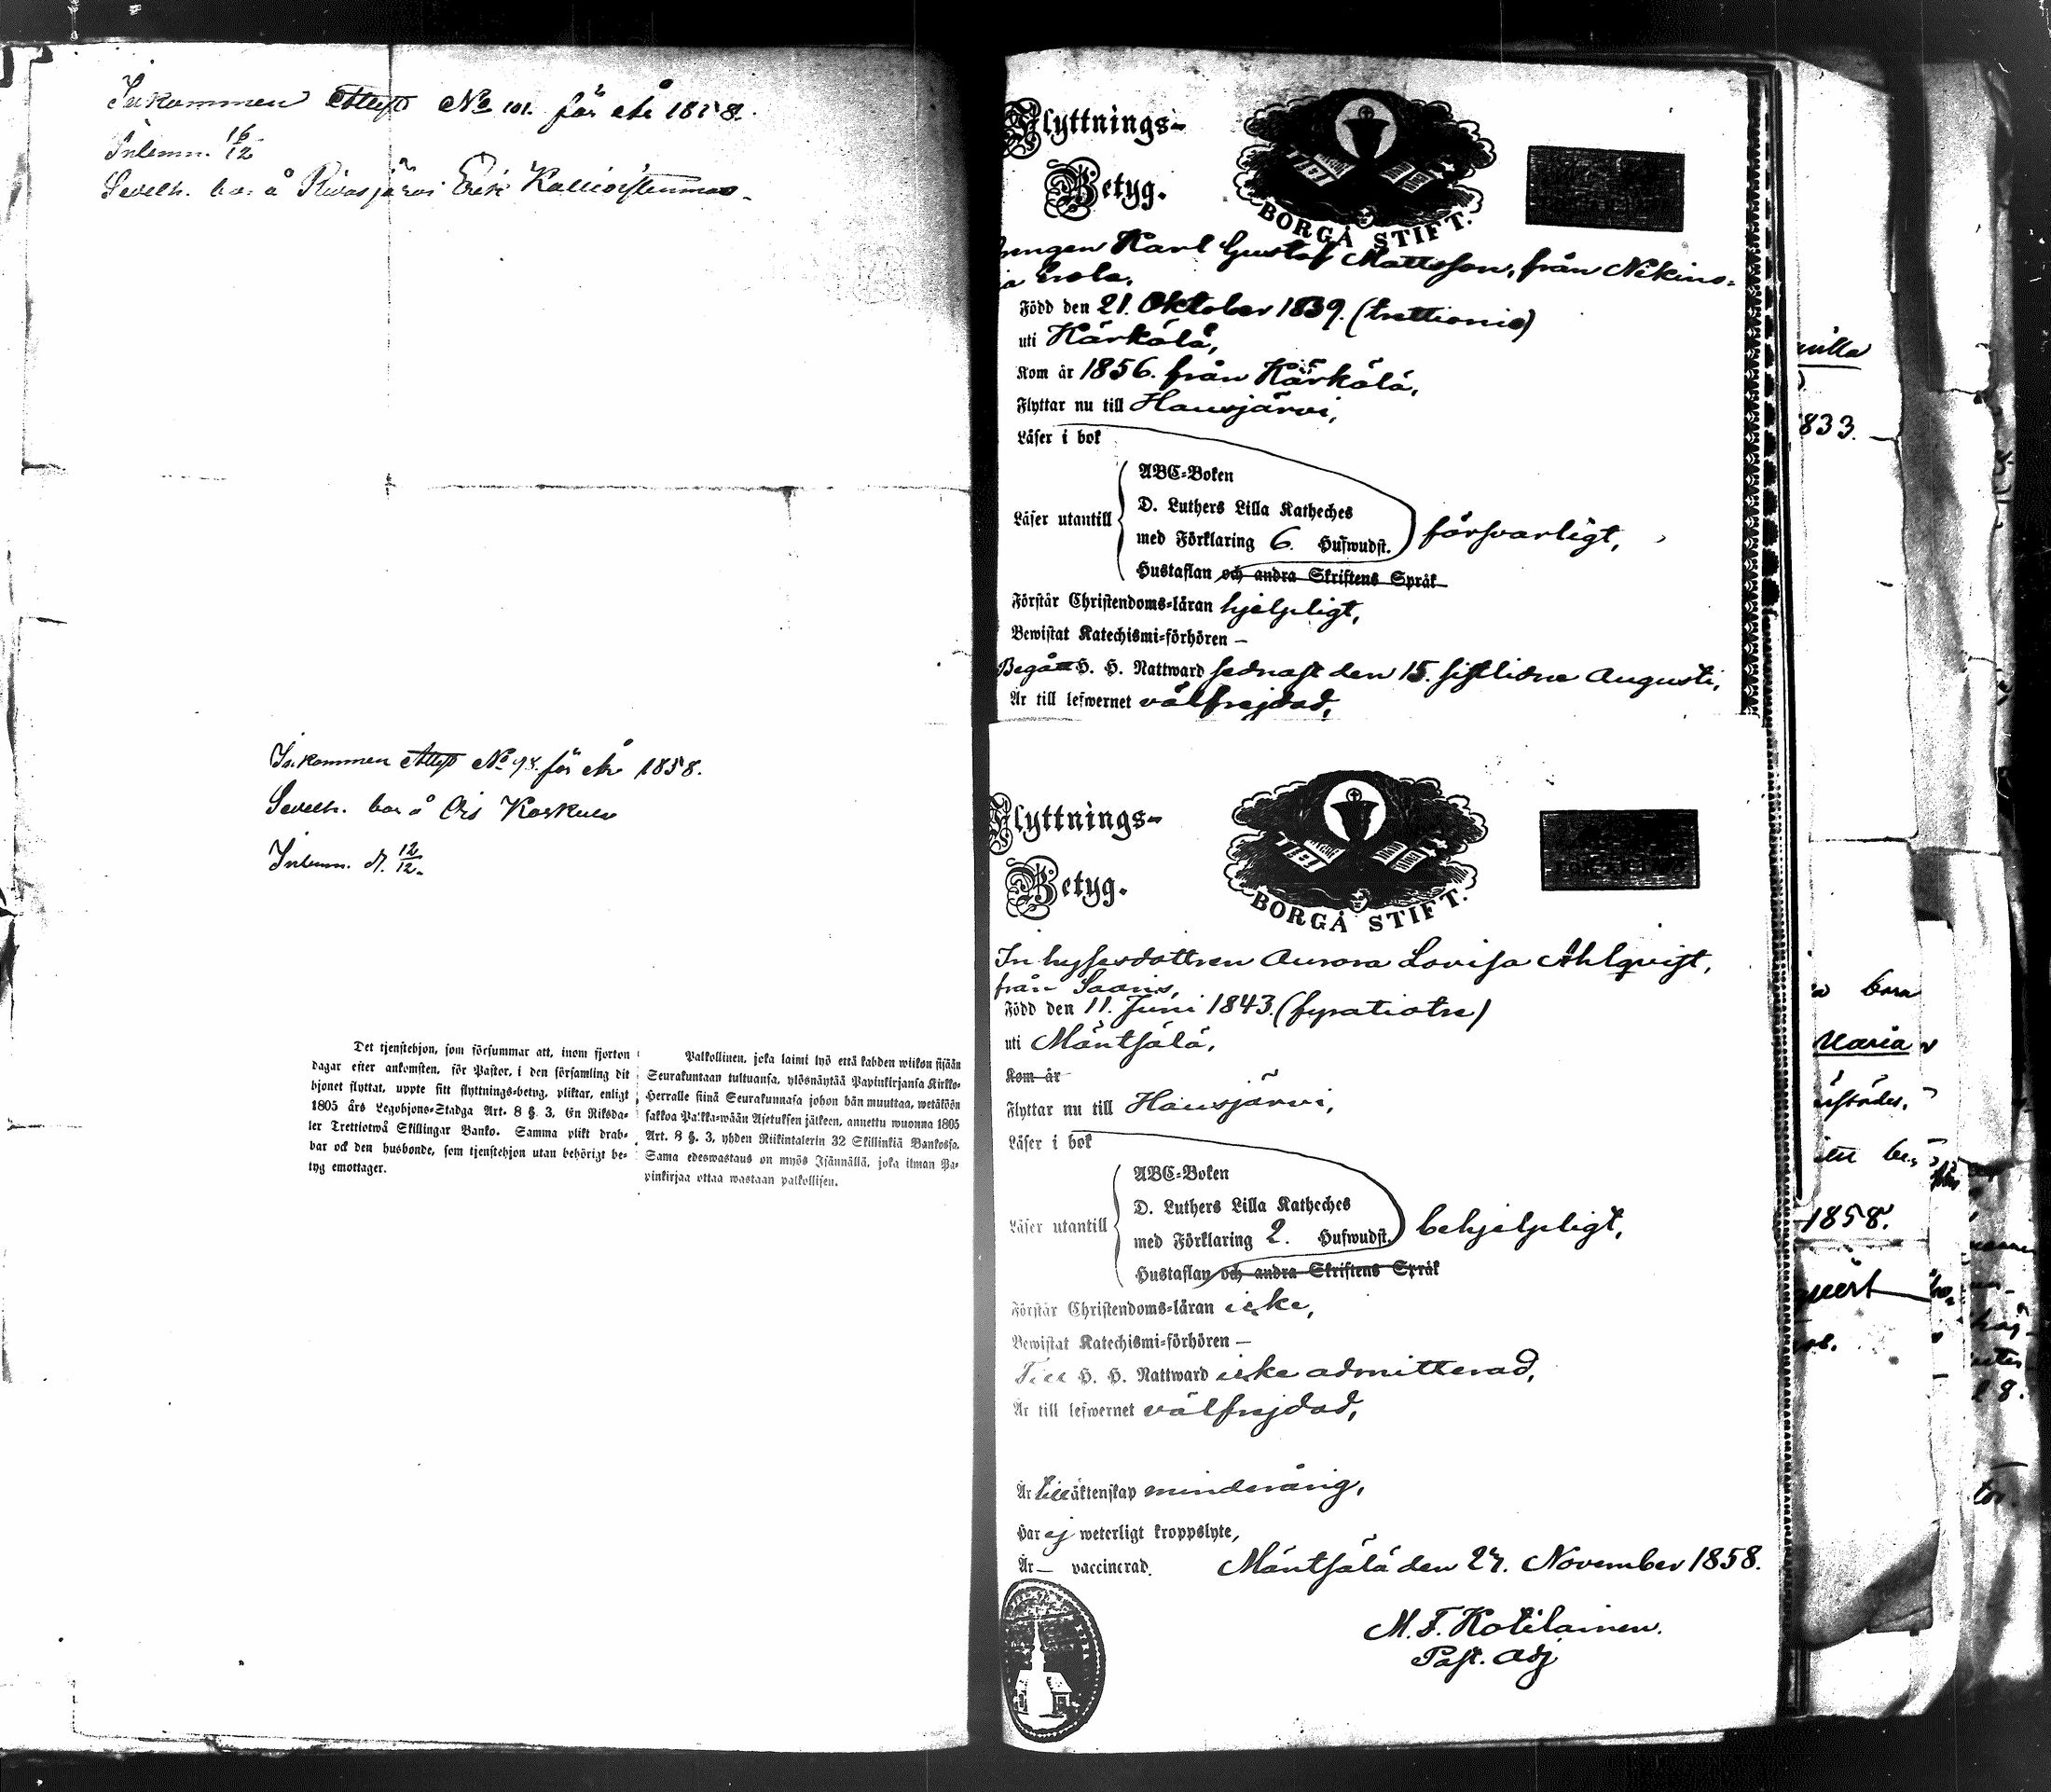 Inkommen Attest No 101. för år 1858.
Inlemn. 16/12
Sedelh. bor å Kallioistenmaa
Inkommen Attest No 98. för år 1858.
Sedelh. bor å Ois Koskela
Inlemn. d. 12/12.
Det tjenstehjon, som försummar att, inom fjorton
dagar efter ankomsten, för Pastor, i den församling dit
hjonet flyttat, uppte sitt flyttnings-betyg, pliktar, enligt
1805 års Legohjons-Stadga Art. 8 §. 3, En Riksda-
ler Trettiotwå Skillingar Banko. Samma plikt drab-
bar ock den husbonde, som tjenstehjon utan behörigt be-
tyg emottager.
Palkollinen, joka laimi lyö että kahden wiikon sisään
Seurakuntaan tultuansa, ylösnäytää Papinkirjansa Kirkko-
Herralle siinä Seurakunnasa johon hän muuttaa, wetäköön
sakkoa Palkka-wään Asetuksen jälkeen, annettu wuonna 1805
Art. 8 §. 3, yhden Riikintalerin 32 Skillinkiä Bankossa.
Sama edeswastaus on myös Isännällä, joka ilman Pa-
pinkirjaa ottaa wastaan palkollisen.
Flyttnings-
Betyg.
BORGÅ STIFT.
Karl Gustaf Mattsson, från Nikins-
Erola.
Född den 21. Oktober 1839. (trettionio)
uti Kärkölä,
Kom år 1856. från Kärkölä,
Flyttar nu till Hausjärvi,
Läser i bok
Läser utantill
ABC-Boken
D. Luthers Lilla Katheches
med Förklaring 6. Hufwudst.
Hustaflan och andra Skriftens Språk
försvarligt,
Förstår Christendoms-läran hjelpligt,
Bewistat Katechismi-förhören —
Begått H. H. Nattward sednast den 15. sistlidne Augusti,
Är till lefwernet välfrejdad,
Flyttnings-
Betyg.
BORGÅ STIFT.
Inhysesdottren Aurora Lovisa Ahlqvist,
från Saaris,
Född den 11. Juni 1843. (fyratiotre)
uti Mäntsälä,
Kom år
Flyttar nu till Hausjärvi,
Läser i bok
Läser utantill
ABC-Boken
D. Luthers Lilla Katheches
med Förklaring 2. Hufwudst.
Hustaflan och andra Skriftens Språk
behjelpligt,
Förstår Christendoms-läran icke,
Bewistat Katechismi-förhören —
Till H. H. Nattward icke admitterad,
Är till lefwernet välfrejdad,
Är till äktenskap minderårig,
Har ej weterligt kroppslyte,
Är — vaccinerad.
Mäntsälä den 27. November 1858.
M. F. Kotilainen.
Past. Adj
833.
bora
Maria
1858.